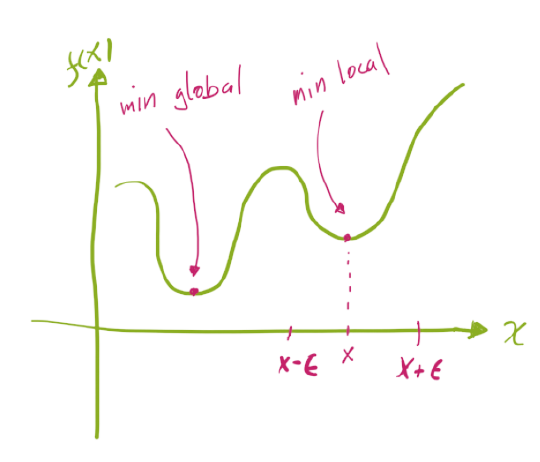 f(x)
min global
min local
x
x-ϵ
x
x+ϵ